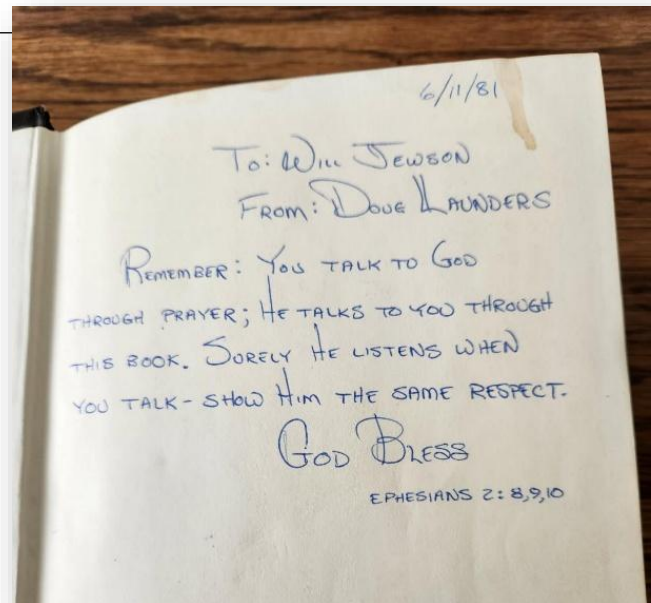 6/11/81
To: Will Jewson
From: Doug Launders
Remember: You talk to God
through prayer; He talks to you through
this book. Surely He listens when
you talk - show Him the same respect.
God Bless
Ephesians 2: 8,9,10